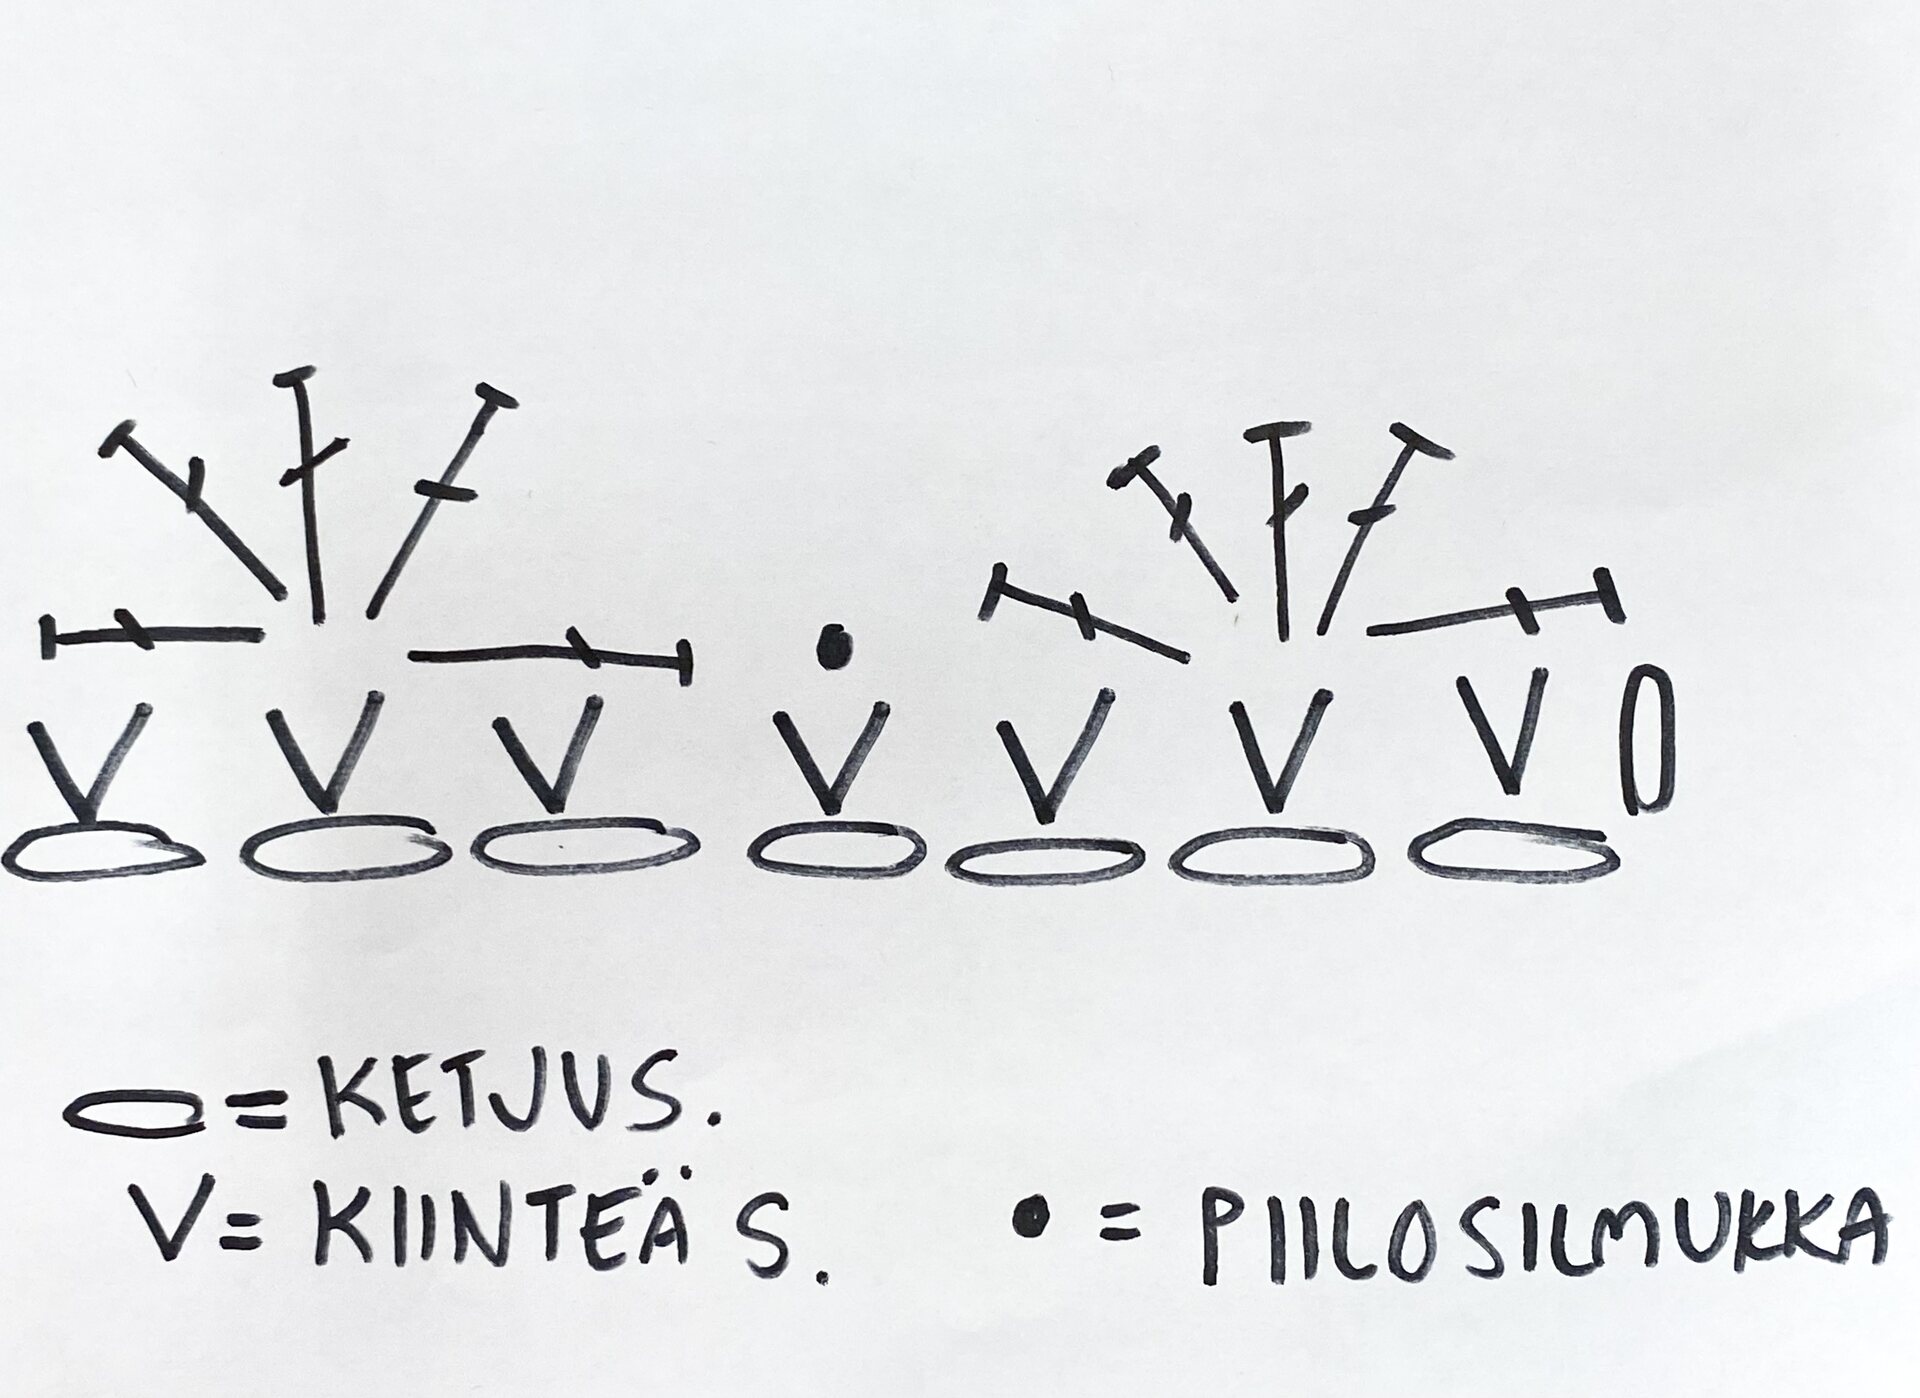 = KETJUS.
V = KIINTEÄ S.
• = PIILOSILMUKKA